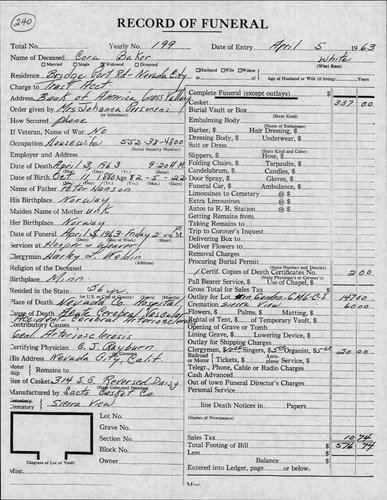 240
RECORD OF FUNERAL
Total No. Yearly No. 199 Date of Entry April 5 1963
Name of Deceased Cora Baker White
Married Single Widowed Divorced (What Race)
Residence Bridge Port Rd - Nevada City Husband Wife Widow
Age of Husband or Wife (if living) Years
Charge to Trust Acct
Address Bank of America Grass Valley
Order given by Mrs Johanna
How Secured phone
If Veteran, Name of War No
Occupation Housewife 552-38-4800
(Social Security Number)
Employer and Address
Date of Death April 3, 1963 9:20 A M
Date of Birth Oct 11, 1880 Age 82-5-22
Name of Father Peter Hanson
His Birthplace Norway
Maiden Name of Mother unk
Her Birthplace Norway
Date of Funeral April 5 1963 - Friday 2 P M
Services at Hooper & Weaver
Clergyman Harley L.
Religion of the Deceased
Birthplace Minn
Resided in the State 36 yr
Place of Death Nevada Co. Hospital
Cause of Death Acute Cerebral Vascular
Accident Cerebral Arterioscl
Contributory Causes
Genl Arteriosclerosis
Certifying Physician C. J. Rayburn
His Address Nevada City, Calif
Motor Ship
Remains to
Size of Casket 314 S.G. Reversed Daisy
(State Color and Number)
Manufactured by Sacto Casket Co
Cemetery
Crematory Sierra View
Lot No.
Grave No.
Section No.
Block No.
Owner
Diagram of Lot or Vault
Misc.
Complete Funeral (except outlays) $
Casket 337 00
Burial Vault or Box
(State Kind)
Embalming Body
(State Kind)
Barber, $ Hair Dressing, $
Dressing Body, $ Underwear, $
Suit or Dress
(State Kind and Color)
Slippers, $ Hose, $
Folding Chairs, $ Tarpaulin, $
Candelabrum, $ Candles, $
Door Spray, $ Gloves, $
Funeral Car, $ Ambulance, $
Extra Limousines @ $
Autos to R. R. Station @ $
Getting Remains from
Taking Remains to
Trip to Coroner's Inquest
Delivering Box to
Deliver Flowers to
Removal Charges
Procuring Burial Permit
(State Number and District)
1 Certif. Copies of Death Certificates No. 2 00
(State Physician's or Coroner's)
Pall Bearer Service $ Use of Chapel, $
Gross Total for Sales Tax $
Outlay for Lot 147 00
Cremation Sierra View 60 00
Flowers, $ Palms, $ Matting, $
Rental of Tent, $ of Temporary Vault, $
Opening of Grave or Tomb
Lining Grave, $ Lowering Device, $
Outlay for Shipping Charges
Clergymen, $ Singers, $ Organist, $ 20 00
Railroad or Motor Tickets, $ Aeroplane Service, $
Telegr., Phone, Cable or Radio Charges
Cash Advanced
Out of town Funeral Director's Charges
Personal Service
line Death Notices in Papers
(Names of Newspapers)
Sales Tax 10 74
Total Footing of Bill $ 576 74
Less
Balance $
Entered into Ledger, page or below.
Misc.